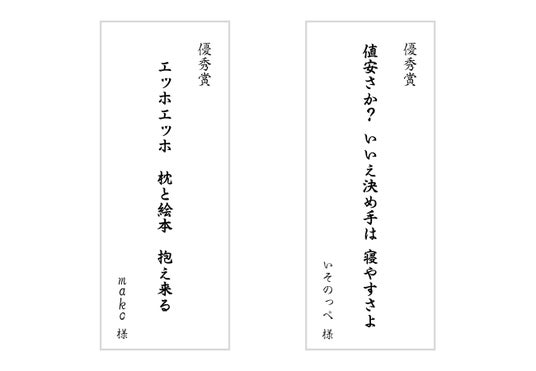 優秀賞
値安さか? いいえ決め手は 寝やすさよ
いそのっぺ 様
優秀賞
エッホエッホ 枕と絵本 抱え来る
mako 様